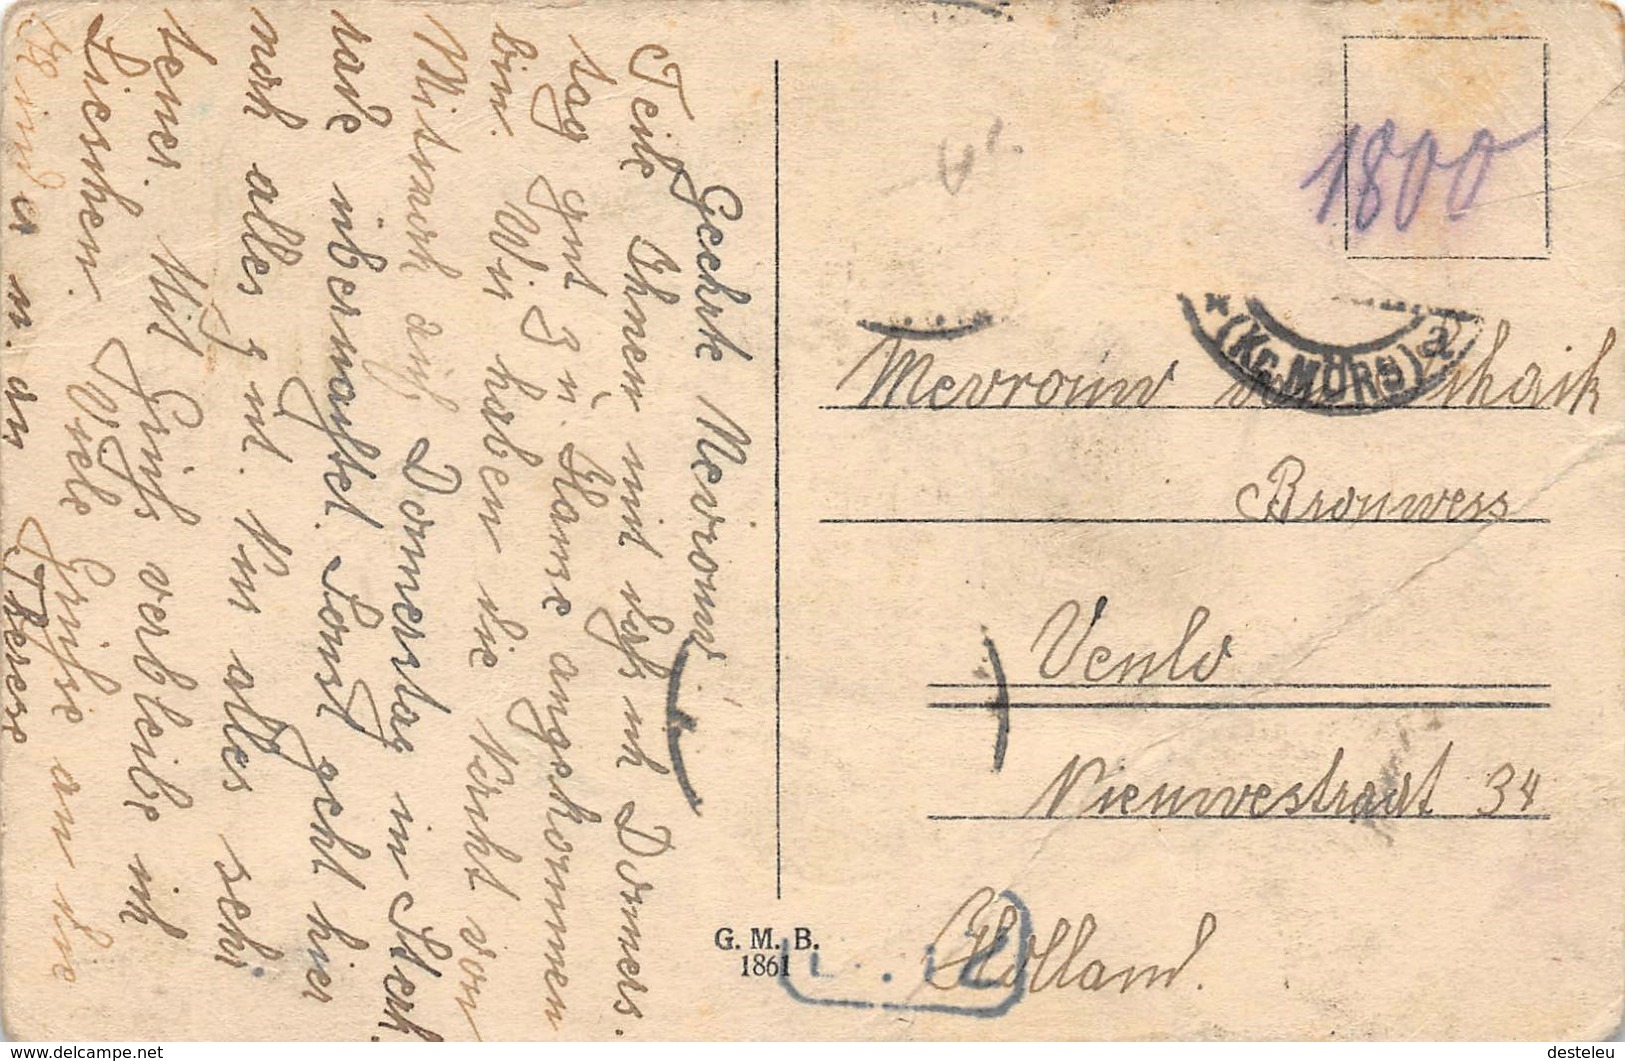 Geehrte Mevrouw.
Teile Ihnen mit daß ich Donners.
tag gut z ü. Hause angekommen
bin. Wir haben die Nacht von
Mittwoch auf Donnerstag in Sterk
rade übernachtet. Sonst geht hier
noch alles gut. Nur alles sehr
teuer. Mit Gruß verbleibe ich
Lieschen. Viele Grüße an die
Kinder u. an Therese
1800
* (Kr. MÖRS) a
Mevrouw
Brouwers
Venlo
Nieuwestraat 34
Holland.
G. M. B.
1861
www.delcampe.net
desteleu